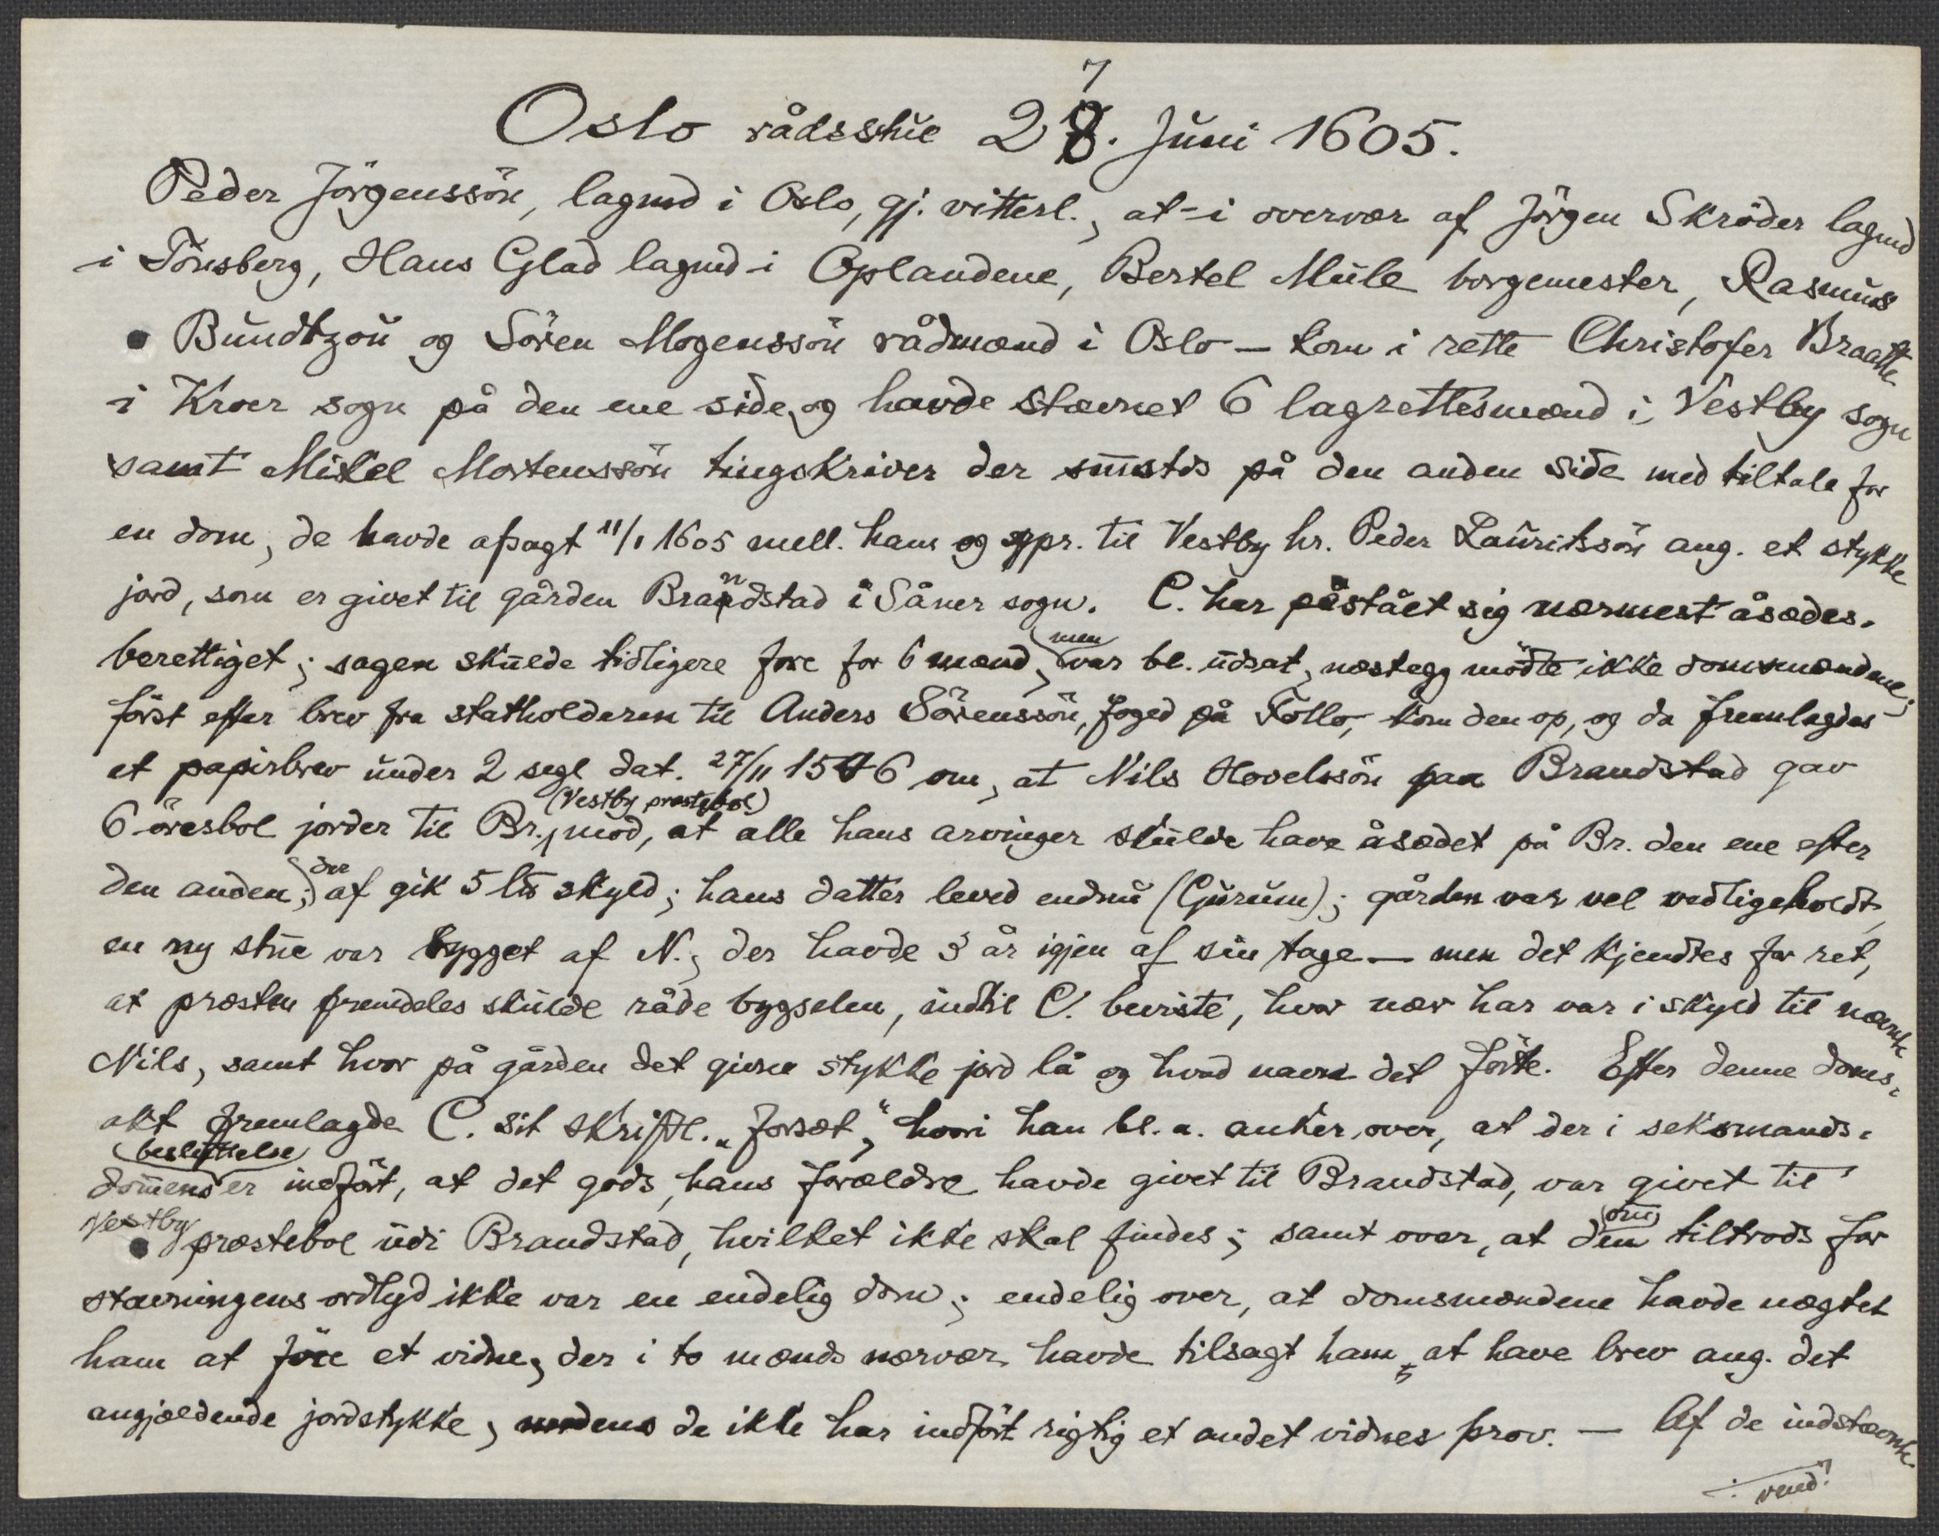 Oslo rådsstue 27. Juni 1605.
Peder Jörgenssön, lagmd i Oslo, gj. vitterl., at - i overvær af Jörgen Skröder lagmd
i Tönsberg, Hans Glad lagmd i Oplandene, Bertel Mule borgemester, Rasmus
Bundtzön og Sören Mogenssön rådmænd i Oslo - kom i rette Christofer Braatte
i Kroer sogn på den ene side, og havde stævnet 6 lagrettesmænd i Vestby sogn
samt Mikel Mortenssön tingskriver der smstds på den anden side med tiltale for
en dom, de havde afsagt 11/1 1605 mell. ham og spr. til Vestby hr. Peder Lauritssön ang. et stykke
jord, som er givet til gården Brandstad i Såner sogn. C. har påstået sig nærmest åsædes-
berettiget; sagen skulde tidligere fore for 6 mænd, men var bl. udsat, næstegg mödte ikke domsmændene;
först efter brev fra statholderen til Anders Sörenssön, foged på Follo, kom den op, og da fremlagdes
et papirbrev under 2 segl dat. 27/11 1546 om, at Nils Hovelssön paa Brandstad gav
6 öresbol jorder til Br. (Vestby prestebol), mod, at alle hans arvinger skulde have åsædet på Br. den ene efter
den anden; der af gik 5 lts skyld; hans datter leved endnu (Gurum); gården var vel vedligeholdt,
en ny stue var bygget af N., der havde 3 år igjen af sin tage - men det kjendtes for ret,
at præsten fremdeles skulde råde bygselen, indtil C. beviste, hvor nær han var i skyld til nævnte
Nils, samt hvor på gården det givne stykke jord lå og hvad navn det förte. Efter denne doms-
akt fremlagde C. sit skriftl. "forsæt", hvori han bl. a. anker over, at der i seksmands-
domens beslüttelse er indfört, at det gods, hans forældre havde givet til Brandstad, var givet til
Vestby præstebol udi Brandstad, hvilket ikke skal findes; samt over, at den tiltrods for
stævningens ordlyd ikke var en endelig dom; endelig over, at domsmændene havde nægtet
ham at före et vidne, der i to mænds nærvær havde tilsagt ham at have brev ang. det
angjældende jordstykke, medens de ikke har indfört rigtig et andet vidnes prov. - Af de indstævnte
vend!